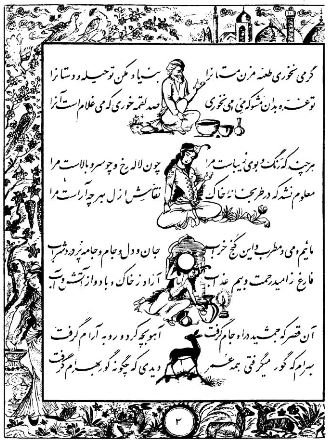 گر می نخوری طعنه مزن مستانرا
بنیاد مکن تو حیله و دستانرا
تو غره بدان مشو که می می نخوری
صد لقمه خوری که می غلام است آنرا
هر چند که رنگ و بوی زیباست مرا
چون لاله رخ و چو سرو بالاست مرا
معلوم نشد که در طربخانهٔ خاک
نقاش ازل بهر چه آراست مرا
مائیم و می و مطرب و این کنج خراب
جان و دل و جام و جامه پر درد شراب
فارغ ز امید رحمت و بیم عذاب
آزاد ز خاک و باد و از آتش و آب
آن قصر که جمشید در او جام گرفت
آهو بچه کرد و روبه آرام گرفت
بهرام که گور میگرفتی همه عمر
دیدی که چگونه گور بهرام گرفت
۲